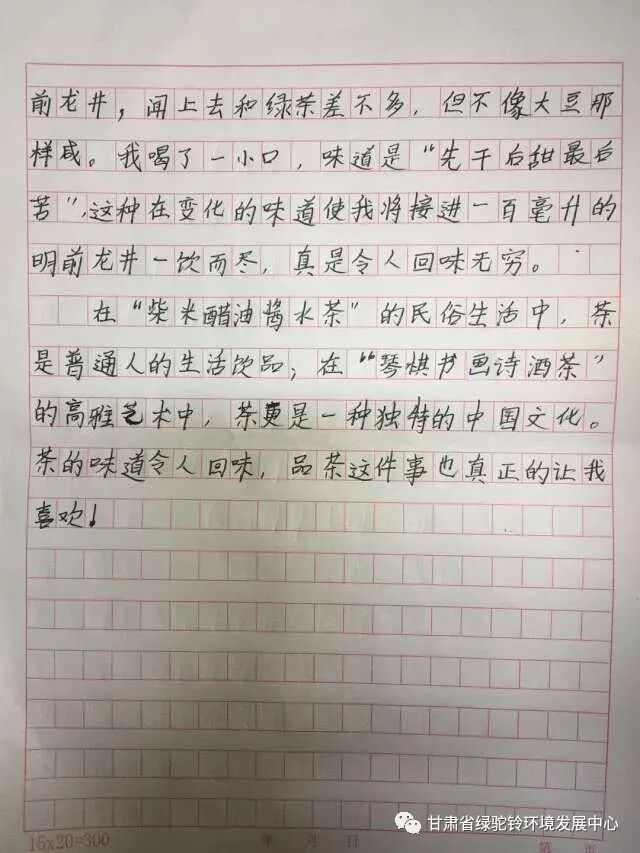 前龙井，闻上去和绿茶差不多，但不像大豆那
样咸。我喝了一小口，味道是“先干后甜最后
苦”，这种在变化的味道使我将接进一百毫升的
明前龙井一饮而尽，真是令人回味无穷。
在“柴米醋油酱水茶”的民俗生活中，茶
是普通人的生活饮品；在“琴棋书画诗酒茶”
的高雅艺术中，茶更是一种独特的中国文化。
茶的味道令人回味，品茶这件事也真正的让我
喜欢！
15x20=300 年 月 日 第 页
甘肃省绿驼铃环境发展中心